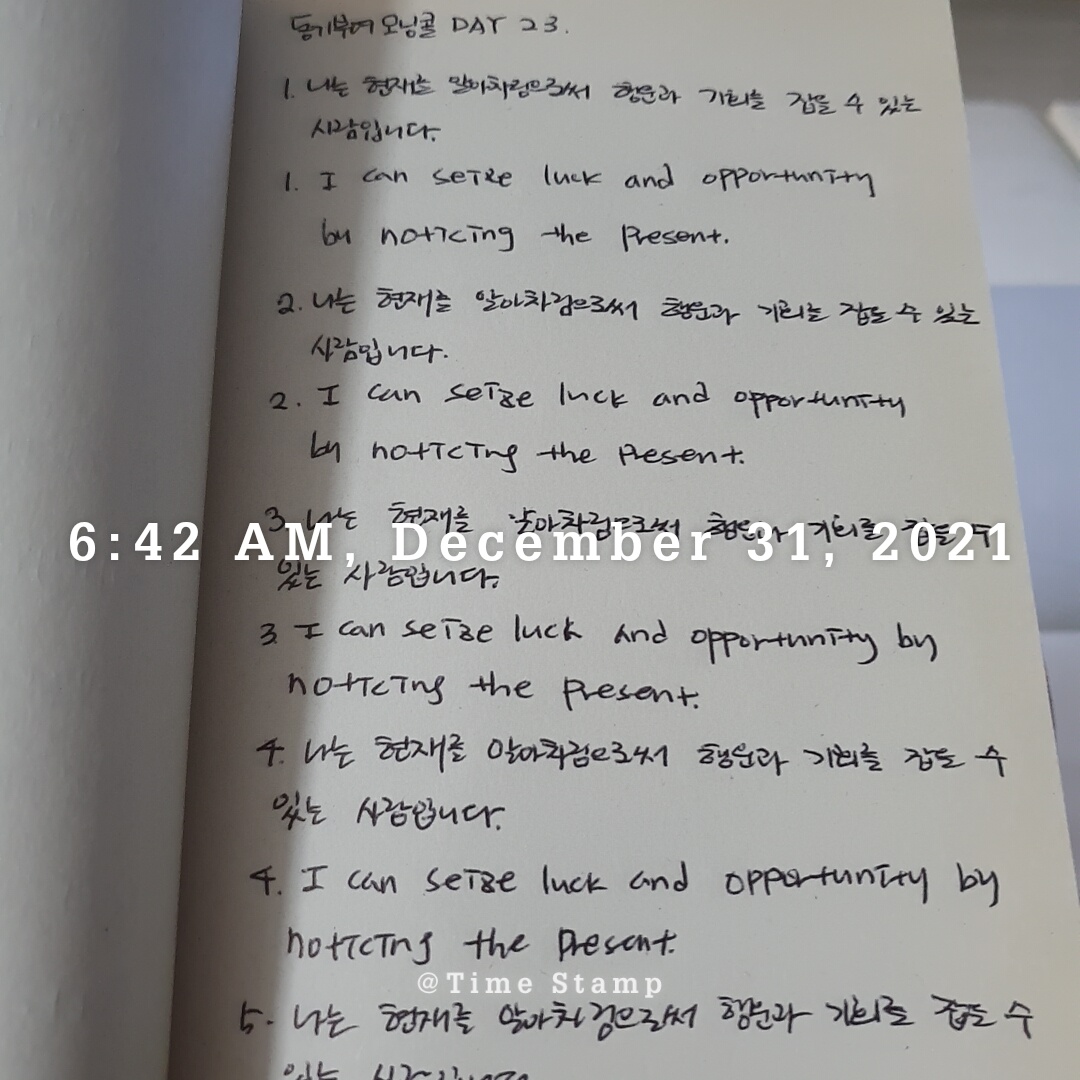 동기부여 모닝콜 DAY 23.
1. 나는 현재를 알아차림으로써 행운과 기회를 잡을 수 있는
사람입니다.
1. I can seize luck and opportunity
by noticing the present.
2. 나는 현재를 알아차림으로써 행운과 기회를 잡을 수 있는
사람입니다.
2. I can seize luck and opportunity
by noticing the present.
3. 나는 현재를 알아차림으로써 행운과 기회를 잡을 수
6:42 AM, December 31, 2021
있는 사람입니다.
3. I can seize luck and opportunity by
noticing the present.
4. 나는 현재를 알아차림으로써 행운과 기회를 잡을 수
있는 사람입니다.
4. I can seize luck and opportunity by
noticing the present.
@Time Stamp
5. 나는 현재를 알아차림으로써 행운과 기회를 잡을 수
있는 사람입니다.